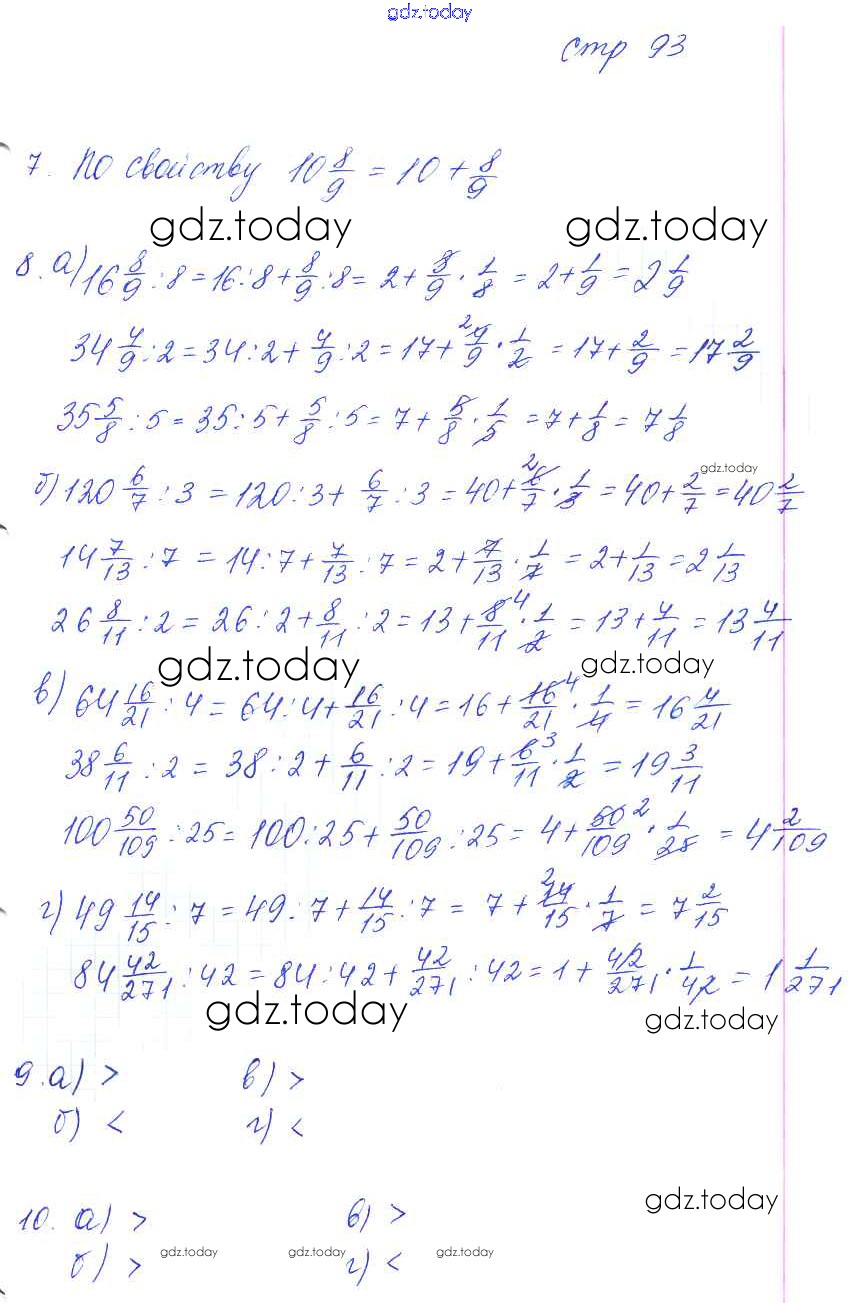 gdz.today
стр 93
7. По свойству 10 8/9 = 10 + 8/9
gdz.today gdz.today
8. а) 16 8/9 : 8 = 16 : 8 + 8/9 : 8 = 2 + 8/9 · 1/8 = 2 + 1/9 = 2 1/9
34 4/9 : 2 = 34 : 2 + 4/9 : 2 = 17 + 4/9 · 1/2 = 17 + 2/9 = 17 2/9
35 5/8 : 5 = 35 : 5 + 5/8 : 5 = 7 + 5/8 · 1/5 = 7 + 1/8 = 7 1/8
gdz.today
б) 120 6/7 : 3 = 120 : 3 + 6/7 : 3 = 40 + 6/7 · 1/3 = 40 + 2/7 = 40 2/7
14 7/13 : 7 = 14 : 7 + 7/13 : 7 = 2 + 7/13 · 1/7 = 2 + 1/13 = 2 1/13
26 8/11 : 2 = 26 : 2 + 8/11 : 2 = 13 + 8/11 · 1/2 = 13 + 4/11 = 13 4/11
gdz.today gdz.today
в) 64 16/21 : 4 = 64 : 4 + 16/21 : 4 = 16 + 16/21 · 1/4 = 16 4/21
38 6/11 : 2 = 38 : 2 + 6/11 : 2 = 19 + 6/11 · 1/2 = 19 3/11
100 50/109 : 25 = 100 : 25 + 50/109 : 25 = 4 + 50/109 · 1/25 = 4 2/109
г) 49 14/15 : 7 = 49 : 7 + 14/15 : 7 = 7 + 14/15 · 1/7 = 7 2/15
84 42/271 : 42 = 84 : 42 + 42/271 : 42 = 1 + 42/271 · 1/42 = 1 1/271
gdz.today gdz.today
9. а) > в) >
б) < г) <
gdz.today
10. а) > в) >
б) > г) <
gdz.today gdz.today gdz.today